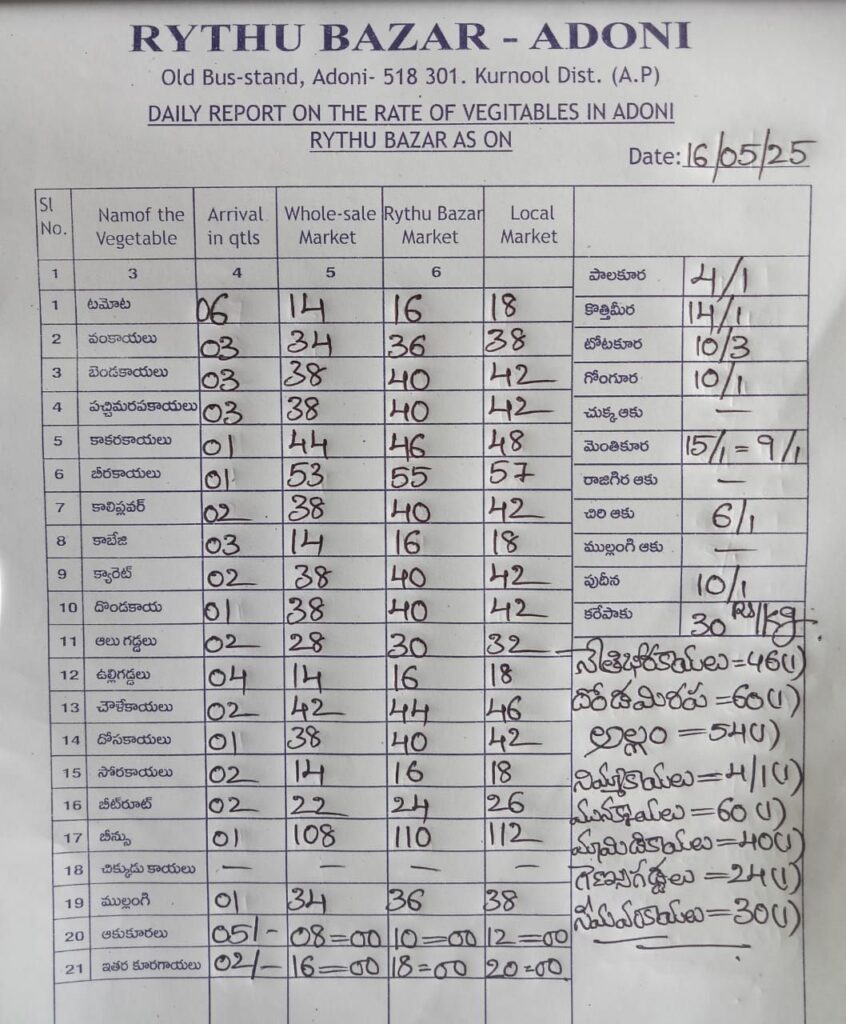 RYTHU BAZAR - ADONI
Old Bus-stand, Adoni- 518 301. Kurnool Dist. (A.P)
DAILY REPORT ON THE RATE OF VEGITABLES IN ADONI
RYTHU BAZAR AS ON
Date: 16/05/25
Sl No. Namof the Vegetable Arrival in qtls Whole-sale Market Rythu Bazar Market Local Market
1 3 4 5 6
1 టమోట 06 14 16 18
2 వంకాయలు 03 34 36 38
3 బెండకాయలు 03 38 40 42
4 పచ్చిమరపకాయలు 03 38 40 42
5 కాకరకాయలు 01 44 46 48
6 బీరకాయలు 01 53 55 57
7 కాలిప్లవర్ 02 38 40 42
8 కాబేజి 03 14 16 18
9 క్యారెట్ 02 38 40 42
10 దొండకాయ 01 38 40 42
11 ఆలు గడ్డలు 02 28 30 32
12 ఉల్లిగడ్డలు 04 14 16 18
13 చౌళేకాయలు 02 42 44 46
14 దోసకాయలు 01 38 40 42
15 సోరకాయలు 02 14 16 18
16 బీట్‌రూట్ 02 22 24 26
17 బీన్సు 01 108 110 112
18 చిక్కుడు కాయలు — — — —
19 ముల్లంగి 01 34 36 38
20 ఆకుకూరలు 05/- 08=00 10=00 12=00
21 ఇతర కూరగాయలు 02/- 16=00 18=00 20=00
పాలకూర 4/1
కొత్తిమీర 14/1
టోటకూర 10/3
గోంగూర 10/1
చుక్క ఆకు —
మెంతికూర 15/1 = 9/1
రాజిగిర ఆకు —
చిరి ఆకు 6/1
ముల్లంగి ఆకు —
పుదీన 10/1
కరేపాకు 30 Rs/Kg.
నేతిబీరకాయలు = 46(1)
=60(1)
అల్లం = 54(1)
నిమ్మకాయలు = 4/1(1)
మునక్కాయలు = 60(1)
మామిడికాయలు = 40(1)
గెణసుగడ్డలు = 24(1)
సీమవంకాయలు = 30(1)